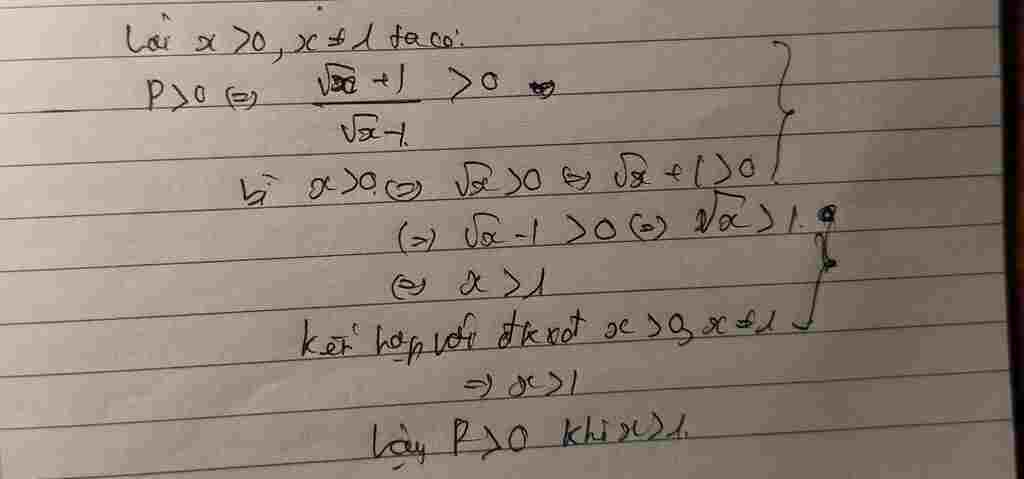 Với x > 0, x ≠ 1 ta có:
P > 0 ⇔ (√x + 1)/(√x - 1) > 0
Vì x > 0 ⇔ √x > 0 ⇔ √x + 1 > 0
⇔ √x - 1 > 0 ⇔ √x > 1.
⇔ x > 1
kết hợp với đkxđ x > 0, x ≠ 1
⇒ x > 1
Vậy P > 0 khi x > 1.